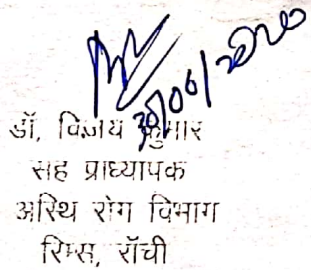 30/06/2020
डॉ, विजय कुमार
सह प्राध्यापक
अस्थि रोग विभाग
रिम्स, राँची